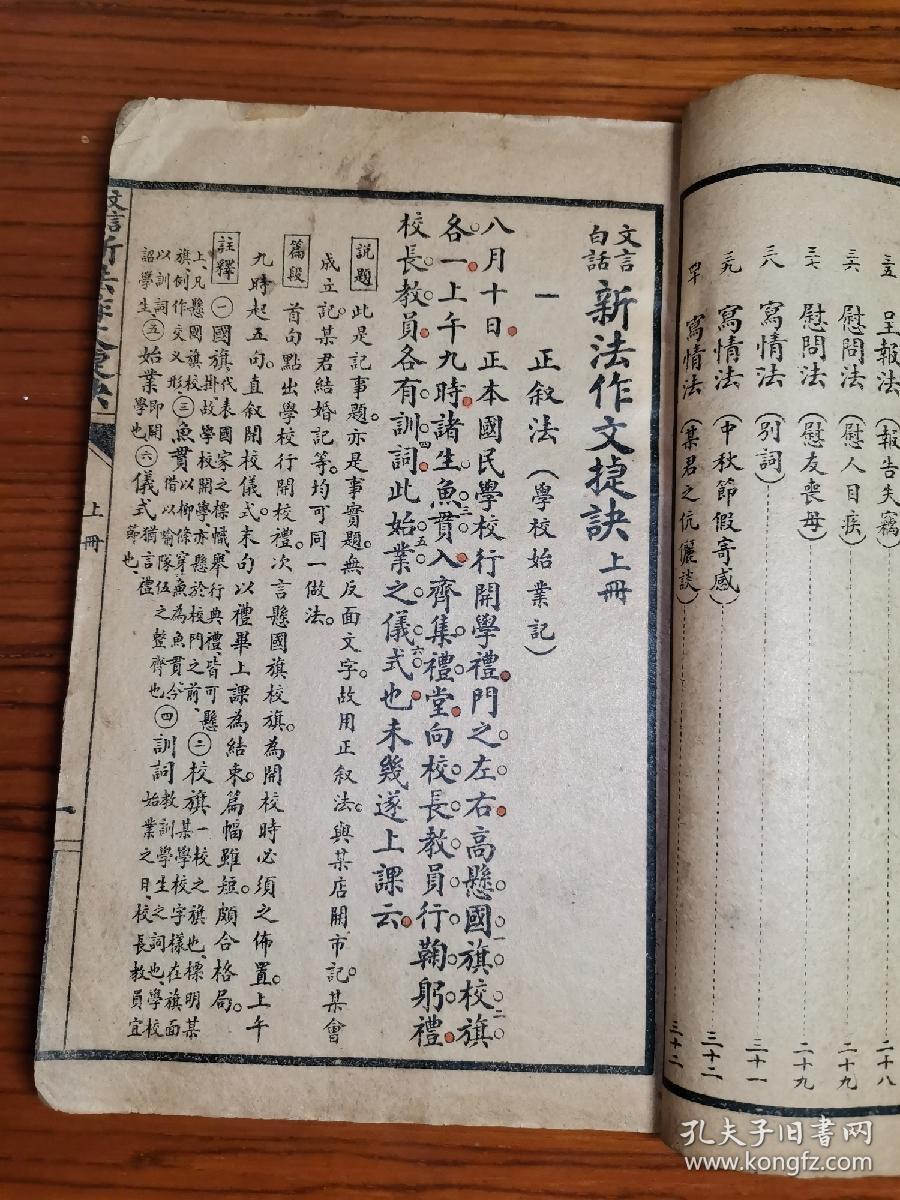 三五 呈報法(報告失竊) 二十八
三六 慰問法(慰人目疾) 二十九
三七 慰問法(慰友喪母) 二十九
三八 寫情法(別詞) 三十一
三九 寫情法(中秋節假寄感) 三十二
四十 寫情法(某君之伉儷談) 三十二
文言白話 新法作文捷訣 上冊
一 正叙法(學校始業記)
八月十日正本國民學校行開學禮門之左右高懸國旗一校旗二
各一上午九時諸生魚貫三入齊集禮堂向校長教員行鞠躬禮
校長教員各有訓詞四此始業五之儀式六也未幾遂上課云
説題 此是記事題。亦是事實題。無反面文字。故用正叙法。與某店開市記。某會
成立記。某君結婚記等。均可同一做法。
篇段 首句點出學校行開校禮。次言懸國旗校旗。為開校時必須之佈置。上午
九時起五句。直叙開校儀式。末句以禮畢上課為結束。篇幅雖短。頗合格局。
註釋 ㊀國旗 代表國家之標幟、舉行典禮、皆可懸上、凡懸國旗校掛、故學校開學、亦懸於校門之前、 ㊁校旗 一校之旗也、標明某某學校字樣、在旗面
旗、例作交叉形、 ㊂魚貫 以柳條穿魚為魚貫、今借以喻隊伍之整齊也、 ㊃訓詞 教訓學生之詞也、學校始業之日、校長教員宜
以訓詞詔學生、 ㊄始業 即開學也、 ㊅儀式 猶言禮節也、
文言 新法作文捷訣 上冊 一
孔夫子旧书网
www.kongfz.com